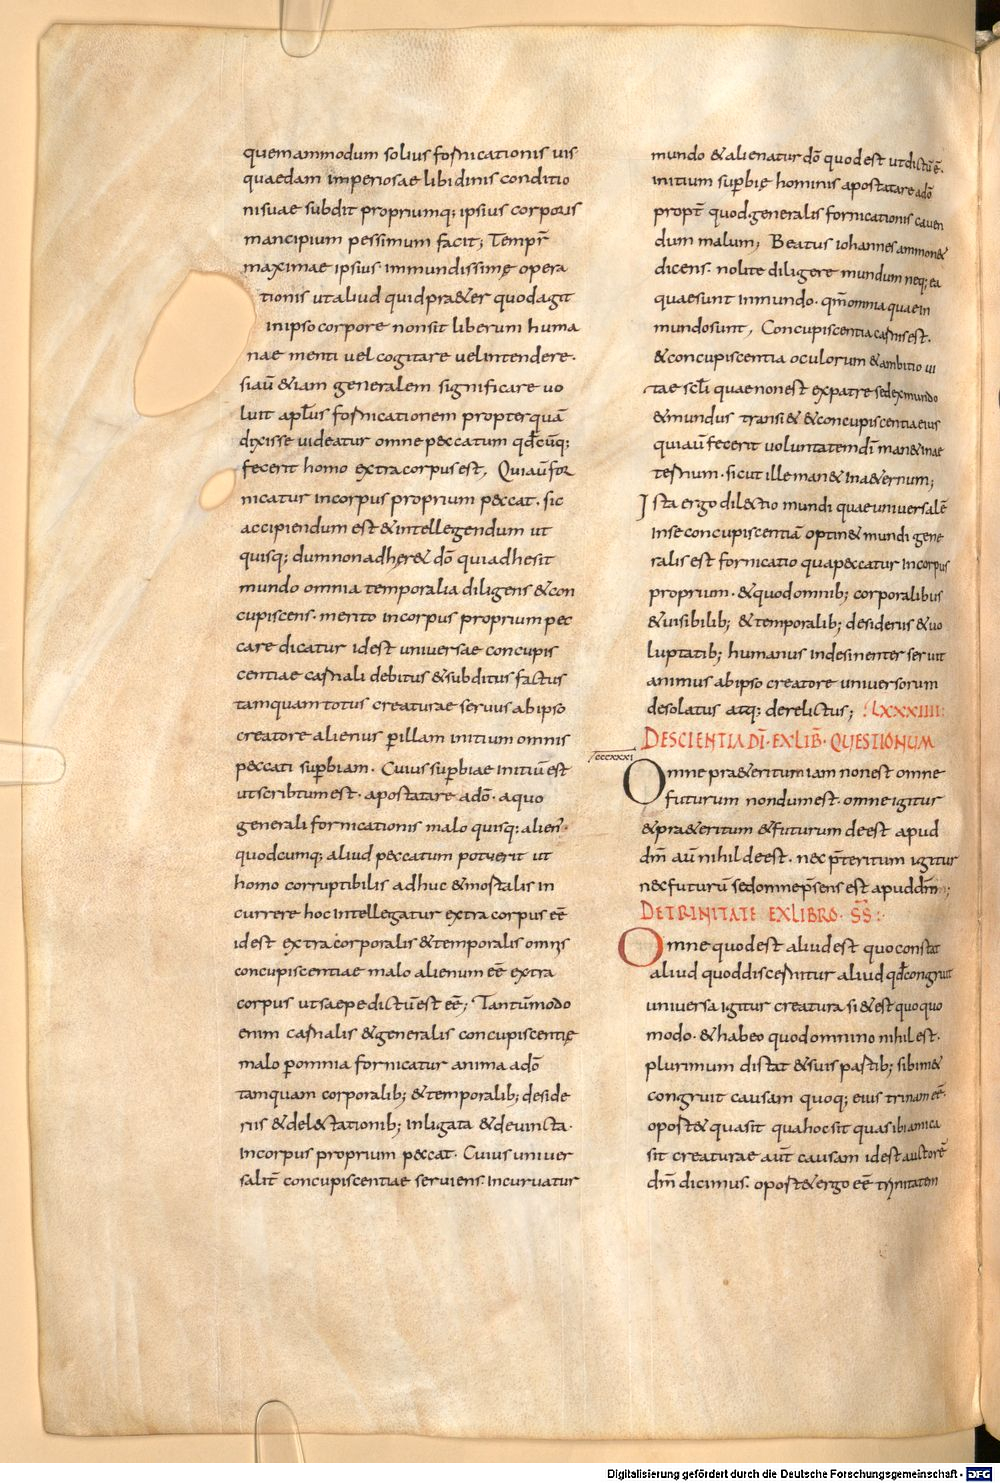 quemammodum solius fornicationis uis
quaedam imperiosae libidinis conditio
nisuae subdit propriumq; ipsius corporis
mancipium pessimum facit; Tempr̄
maximae ipsius immundissimę opera
tionis ut aliud quid pr&er quod agit
in ipso corpore non sit liberum huma
nae menti uel cogitare uel intendere.
siaū &iam generalem significare uo
luit apłus fornicationem propter quā
dixisse uideatur omne peccatum qđcūq;
fecerit homo extra corpus est, Qui aū for
nicatur in corpus proprium peccat. sic
accipiendum est & intellegendum ut
quisq; dum non adher& dō qui adhesit
mundo omnia temporalia diligens & con
cupiscens. merito in corpus proprium pec
care dicatur id est uniuersae concupis
centiae carnali debitus & subditus factus
tamquam totus creaturae seruus ab ipso
creatore alienus p̄ illam initium omnis
peccati sup̄biam. Cuius sup̄biae initiū est
ut scribtum est. apostatare a dō. a quo
generali fornicationis malo quisq; alien.
quodcumq; aliud peccatum potuerit ut
homo corruptibilis adhuc & mortalis in
currere hoc intellegatur extra corpus eē
id est extra corporalis & temporalis omnis
concupiscentiae malo alienum eē extra
corpus ut saepe dictū est eē; Tantūmodo
enim carnalis & generalis concupiscentię
malo p̄ omnia fornicatur anima a dō
tamquam corporalib; & temporalib; deside
riis & delectationib; inligata & deuincta.
in corpus proprium peccat. Cuius uniuer
salit̄ concupiscentiae seruiens. incuruatur
mundo & alienatur dō quod est ut dictū ē.
initium sup̄bię hominis apostatare a dō
propt̄ quod generalis fornicationis cauen
dum malum; Beatus iohannes ammon&
dicens. nolite diligere mundum neq; ea
quae sunt in mundo. qm̄ omnia quae in
mundo sunt, Concupiscentia carnis est.
& concupiscentia oculorum & ambitio ui
tae scłi quae non est ex patre sed ex mundo
& mundus transi& & concupiscentia eius
qui aū fecerit uoluntatem dī man& in ae
ternum. sicut ille man& in aeternum;
Ista ergo dilectio mundi quae uniuersalē
in se concupiscentiā optin& mundi gene
ralis est fornicatio qua peccatur in corpus
proprium. & quod omnib; corporalibus
& uisibilib; & temporalib; desideriis & uo
luptatib; humanus indesinenter seruit
animus ab ipso creatore uniuersorum
desolatus atq; derelictus; LXXXIIII:
DE SCIENTIA DĪ. EX LIB̄. QUESTIONUM
cccxxxi
Omne pr&eritum iam non est omne
futurum nondum est. omne igitur
& pr&eritum & futurum deest apud
dm̄ aū nihil deest. nec p̄teritum igitur
nec futurū sed omne p̄sens est apud dm̄;
DE TRINITATE EX LIBRO. S̄S̄:
Omne quod est aliud est quo constat
aliud quo discernitur aliud qđ congruit
uniuersa igitur creatura si & est quoquo
modo. & habeo quod omnino nihil est.
plurimum distat & suis partib; sibim&
congruit causam quoq; eius trinam eē.
oport& qua sit qua hoc sit qua sibi amica
sit creaturae aut̄ causam id est auctorē
dm̄ dicimus. oport& ergo eē trinitatem
Digitalisierung gefördert durch die Deutsche Forschungsgemeinschaft - DFG